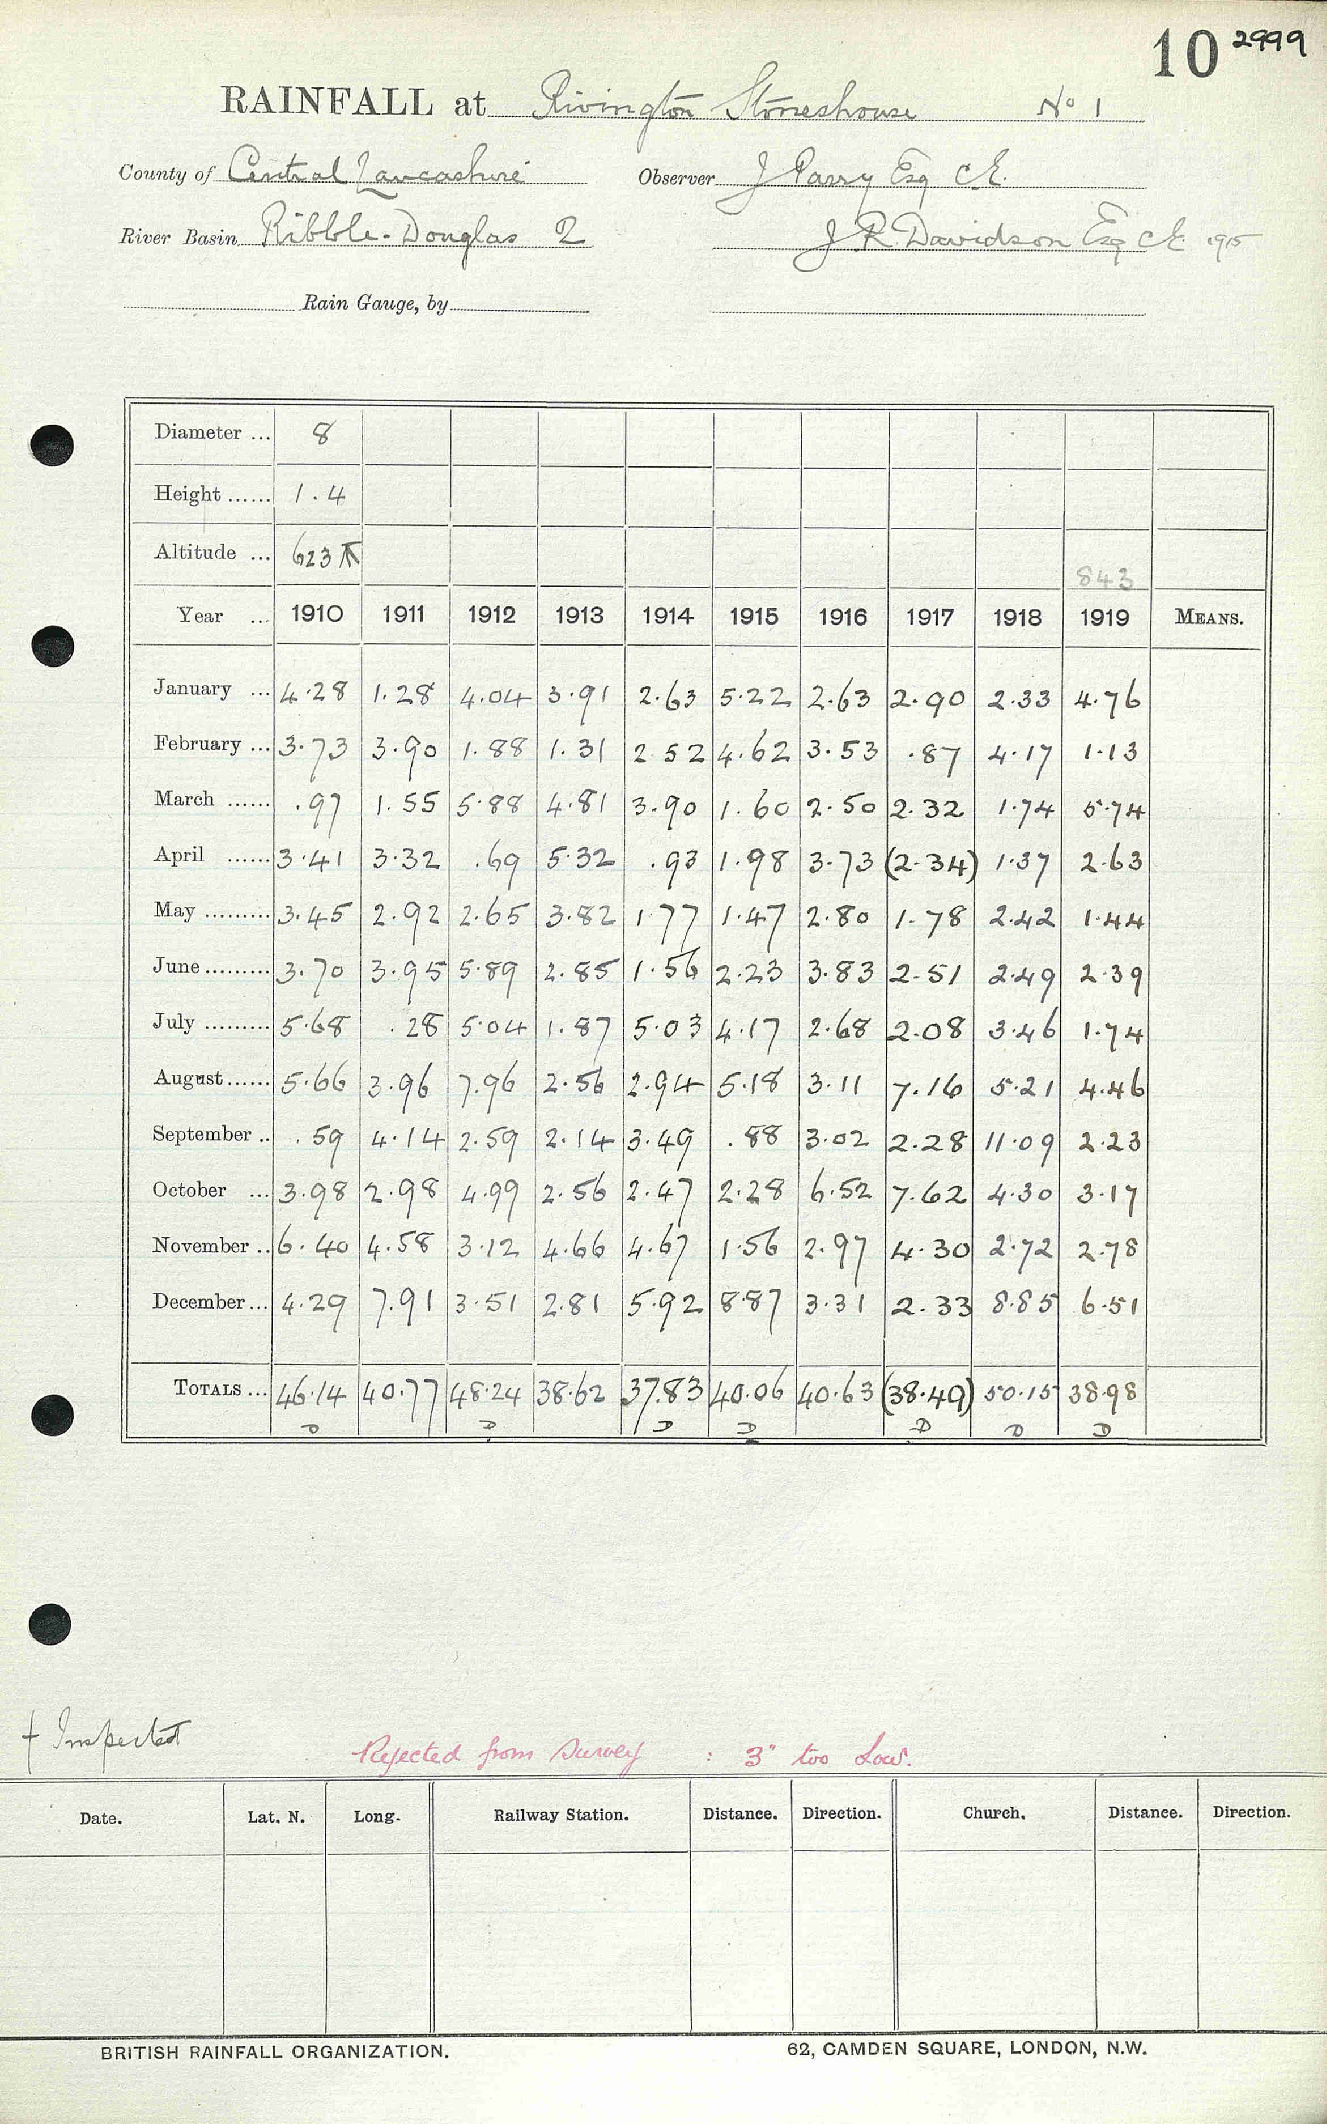 10 2999
RAINFALL at Rivington Stoneshouse No 1
County of Central Lancashire Observer J Parry Esq C.E.
River Basin Ribble-Douglas 2 J R Davidson Esq C.E. 1915
Rain Gauge, by
Diameter ... 8
Height ...... 1.4
Altitude ... 623
843
Year ... 1910 1911 1912 1913 1914 1915 1916 1917 1918 1919 MEANS.
January ... 4.28 1.28 4.04 3.91 2.63 5.22 2.63 2.90 2.33 4.76
February ... 3.73 3.90 1.88 1.31 2.52 4.62 3.53 .87 4.17 1.13
March ...... .97 1.55 5.88 4.81 3.90 1.60 2.50 2.32 1.74 5.74
April ...... 3.41 3.32 .69 5.32 .93 1.98 3.73 (2.34) 1.37 2.63
May ......... 3.45 2.92 2.65 3.82 1.77 1.47 2.80 1.78 2.42 1.44
June ......... 3.70 3.95 5.89 2.85 1.56 2.23 3.83 2.51 2.49 2.39
July ......... 5.68 .28 5.04 1.87 5.03 4.17 2.68 2.08 3.46 1.74
August ...... 5.66 3.96 7.96 2.56 2.94 5.18 3.11 7.16 5.21 4.46
September .. .59 4.14 2.59 2.14 3.49 .88 3.02 2.28 11.09 2.23
October ... 3.98 2.98 4.99 2.56 2.47 2.28 6.52 7.62 4.30 3.17
November .. 6.40 4.58 3.12 4.66 4.67 1.56 2.97 4.30 2.72 2.78
December ... 4.29 7.91 3.51 2.81 5.92 8.87 3.31 2.33 8.85 6.51
TOTALS ... 46.14 40.77 48.24 38.62 37.83 40.06 40.63 (38.49) 50.15 38.98
D D D D D D D
† Inspected
Rejected from Survey : 3" too Low.
Date. Lat. N. Long. Railway Station. Distance. Direction. Church. Distance. Direction.
BRITISH RAINFALL ORGANIZATION. 62, CAMDEN SQUARE, LONDON, N.W.